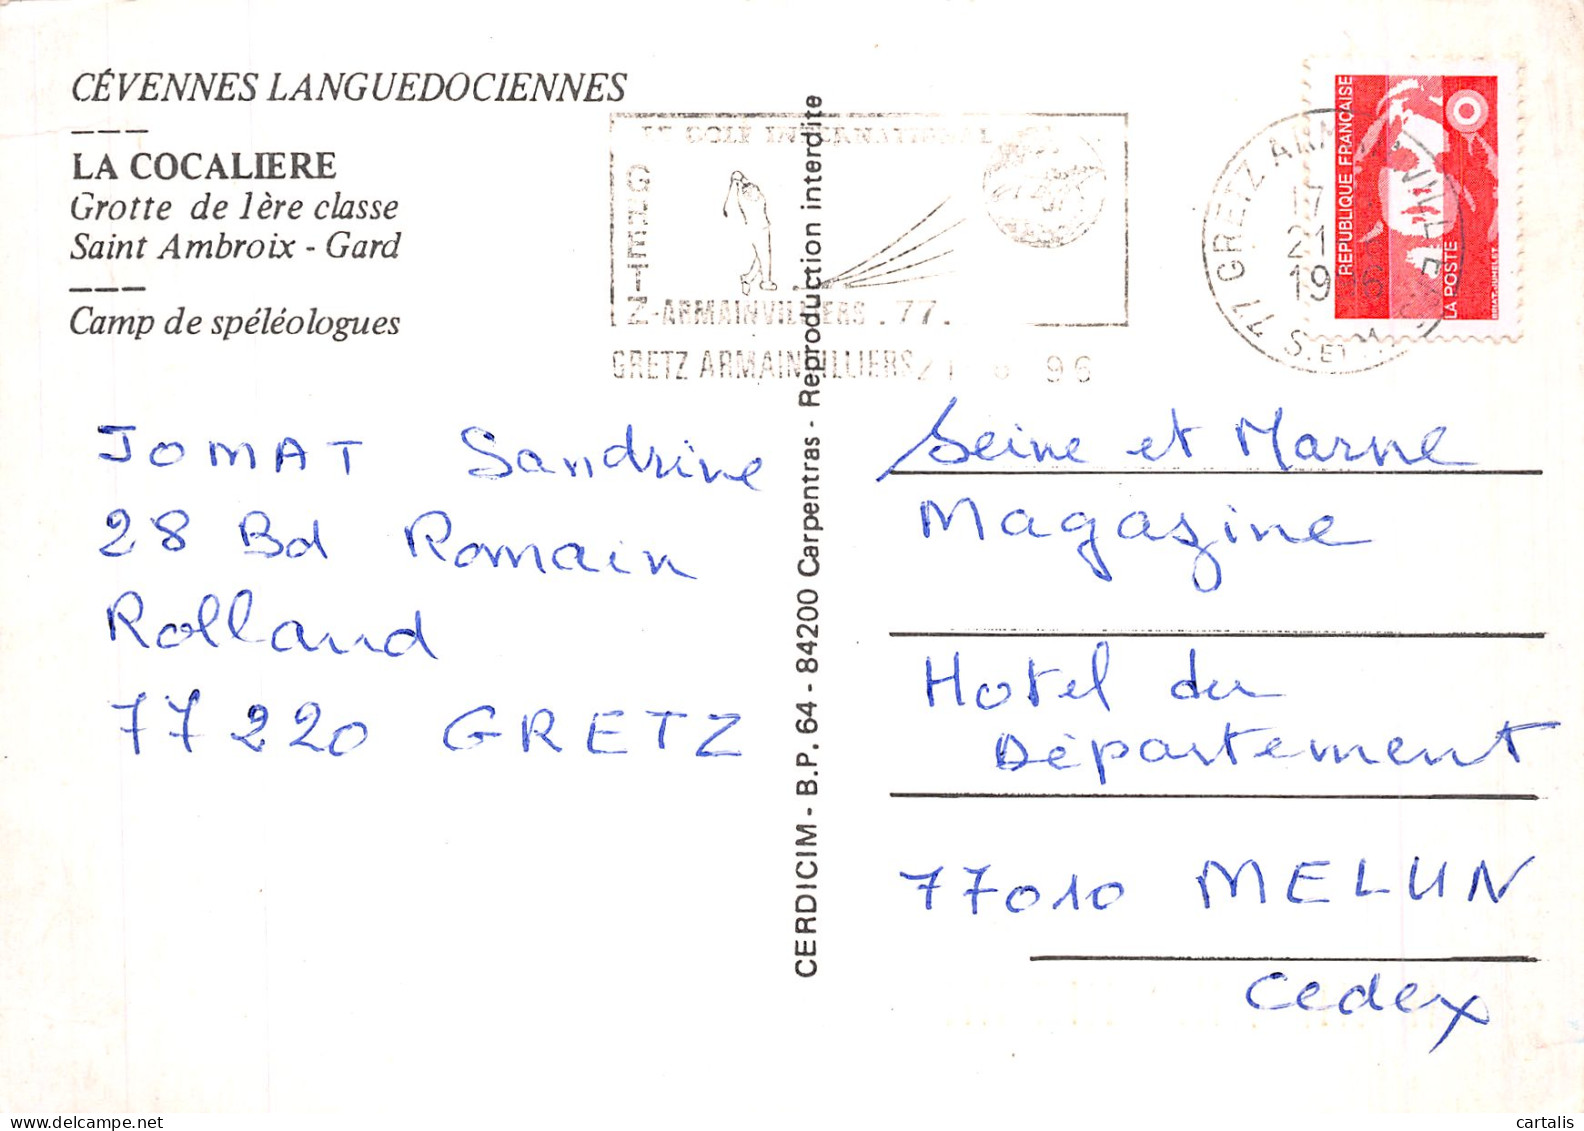 CÉVENNES LANGUEDOCIENNES
LA COCALIERE
Grotte de 1ère classe
Saint Ambroix - Gard
Camp de spéléologues
LE GOLF INTERNATIONAL
GRETZ-ARMAINVILLIERS . 77.
GRETZ ARMAINVILLIERS 21 96
77 GRETZ ARMAINVILLIERS
17
21
1996
S. ET M.
REPUBLIQUE FRANÇAISE
LA POSTE
JOMAT Sandrine
28 Bd Romain
Rolland
77220 GRETZ
CERDICIM - B.P. 64 - 84200 Carpentras - Reproduction interdite
Seine et Marne
Magazine
Hotel du
Département
77010 MELUN
Cedex
cartalis